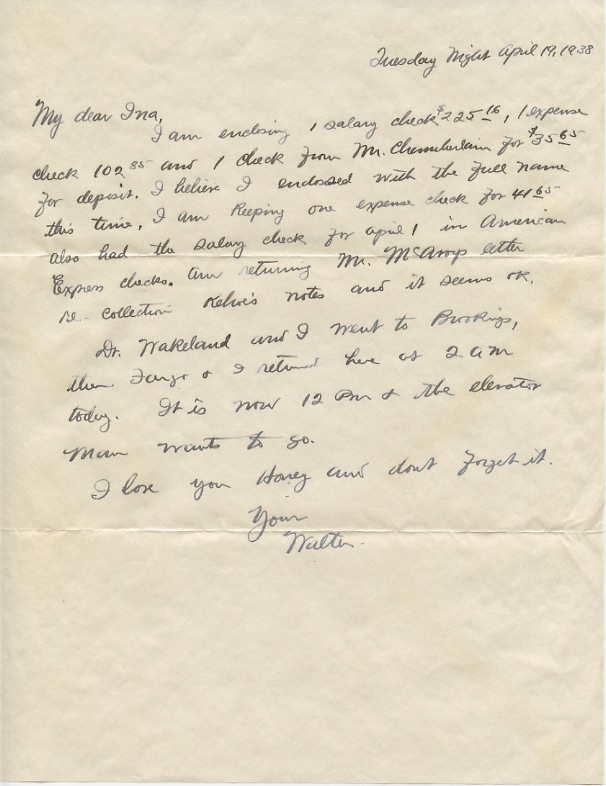 Tuesday Night April 19, 1938
My dear Ina,
I am enclosing 1 salary check $225.16, 1 expense
check 102 85 and 1 check from Mr. Chamberlain for $35 65
for deposit. I believe I endorsed with the full name
this time. I am keeping one expense check for 41 65
also had the salary check for april 1 in American
Express checks. am returning Mr. letter
re- collection notes and it seems ok.
Dr. Wakeland and I went to Brookings,
then Fargo & I returned here at 2 am
today. It is now 12 Pm & the elevator
man wants to go.
I love you Honey and dont forget it.
Your
Walter.